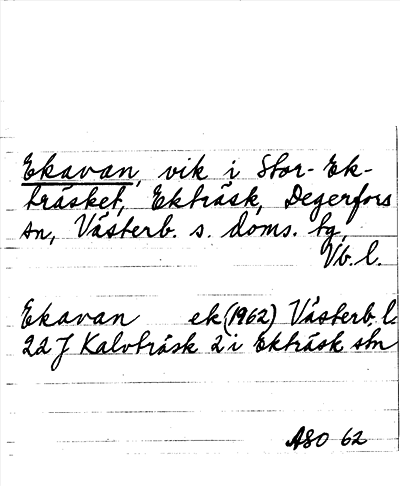 Ekavan, vik i Stor-Ek-
träsket, Ekträsk, Degerfors
sn, Västerb. s. doms. tg,
Vb. l.
Ekavan ek (1962) Västerb. l.
22 J Kalvträsk 2 i Ekträsk stn
ASO 62